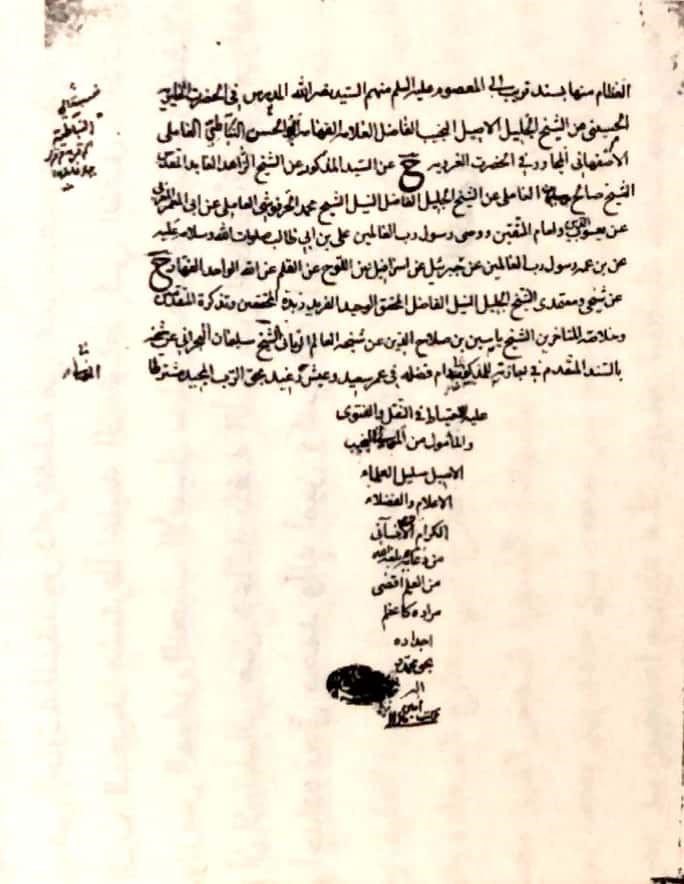 العظام منها بسند قريب الى المعصوم عليه السلم منهم السيد نصر الله المدرس في الحضرت
الحسيني عن الشيخ الجليل الاصيل النجيب الفاضل العلامه الفهامه ابي الحسن النباطي العاملي
الأصفهاني المجاور في الحضرت الغرويه ح عن السيد المذكور عن الشيخ الزاهد العابد المقدس
الشيخ صالح العاملي عن الشيخ الجليل الفاضل النبيل الشيخ محمد الحرفوشي العاملي عن ابي
عن يعسوب الدين وامام المتقين ووصي رسول رب العالمين علي بن ابي طالب صلوات الله وسلامه عليه
عن بن عمه رسول رب العالمين عن جبرئيل عن اسرافيل عن اللوح عن القلم عن الله الواحد القهار ح
عن شيخي ومعتمدي الشيخ الجليل النبيل الفاضل المحقق الوحيد الفريد زبدة وتذكرة
وخلاصة المتاخرين الشيخ ياسين بن صلاح الدين عن شيخه العالم الرباني الشيخ سليمان البحراني عن شيخه
بالسند المتقدم في اجازته المذكوره دام فضله في عمر سعيد وعيش رغيد بحق الرب المجيد مشترطا
عليه الاحتياط في النقل والفتوى
والمأمول من النجيب
الاصيل سليل العلماء
الاعلام والفضلاء
الكرام
من دعائه بلغه الله
من العلم أقصى
مراده كاعظم
اجداده
بحق محمد و
اله
امين
النباطية